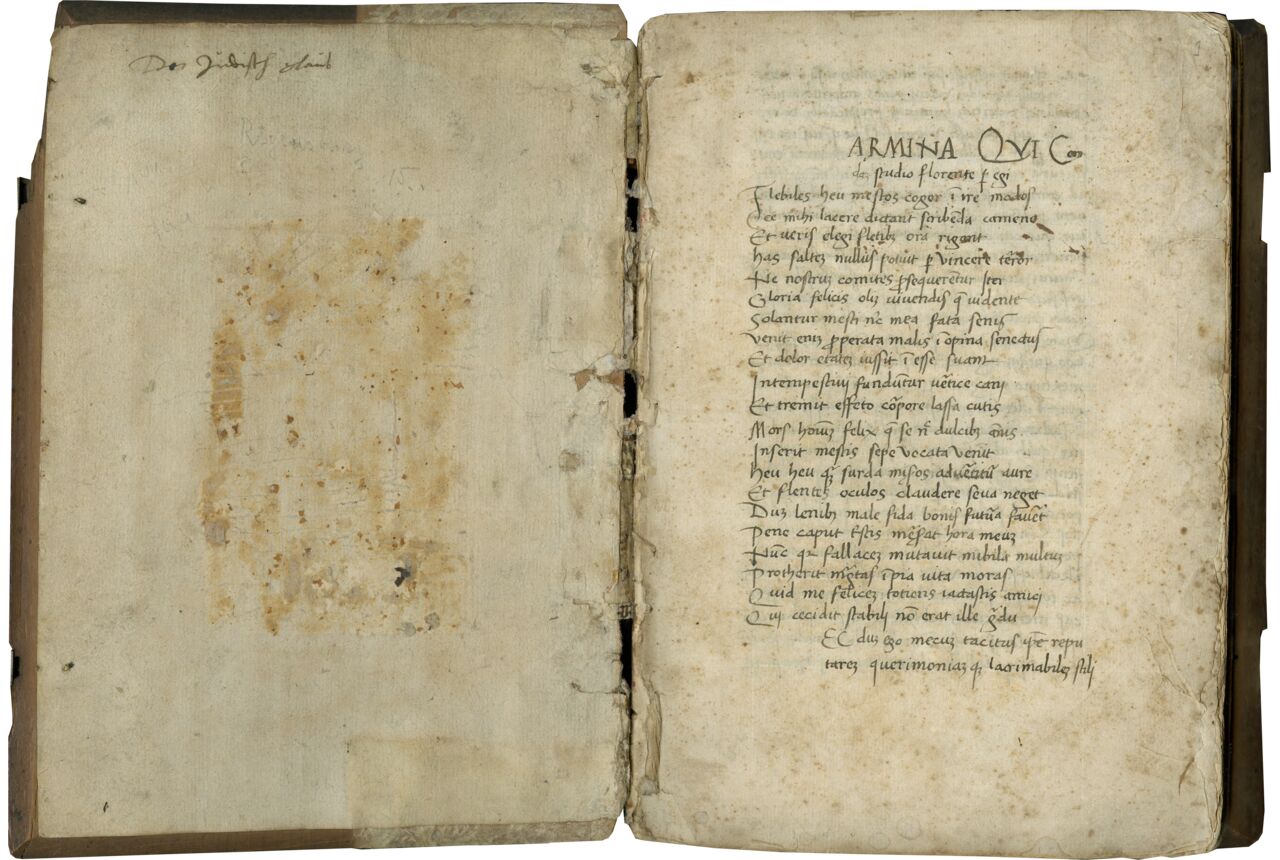 Der Jüdisch glaub
3
ARMINA QVI Con
da studio florente p egi
Flebiles heu mestos cogor ī ire modos
Ecce mihi lacere dictant scribēda camene
Et veris elegi fletibꝫ ora rigant
has saltez nullus potuit p vincere terror
Ne nostruz comites ꝓsequerentur iter
Gloria felicis oliz viuendis qꝫ uidente
Solantur mesti nc mea fata senis
venit eniz ꝓperata malis ī opina senectus
Et dolor etatez iussit ī esse suam
Intempestiui funduntur uertice canij
Et tremit effeto corpore lassa cutis
Mors hominū felix q se nc dulcibꝫ annis
Inserit mestis sepe vocata venit
heu heu qꝫ surda misos aduertitur aure
Et flentes oculos claudere seua neget
Duz leuibꝫ male fida bonis futura fauet
Pene caput tristis merserat hora meuz
Nūc qr fallacez mutauit nibila multuz
Protherit ingratas īpia vita moras
Quid me felicez totiens iactastis amicij
Qui cecidit stabili nō erat ille gradu
EC duz ego mecuz tacitus ipse repu
tarez querimoniaz qꝫ lacrimabilez stilj